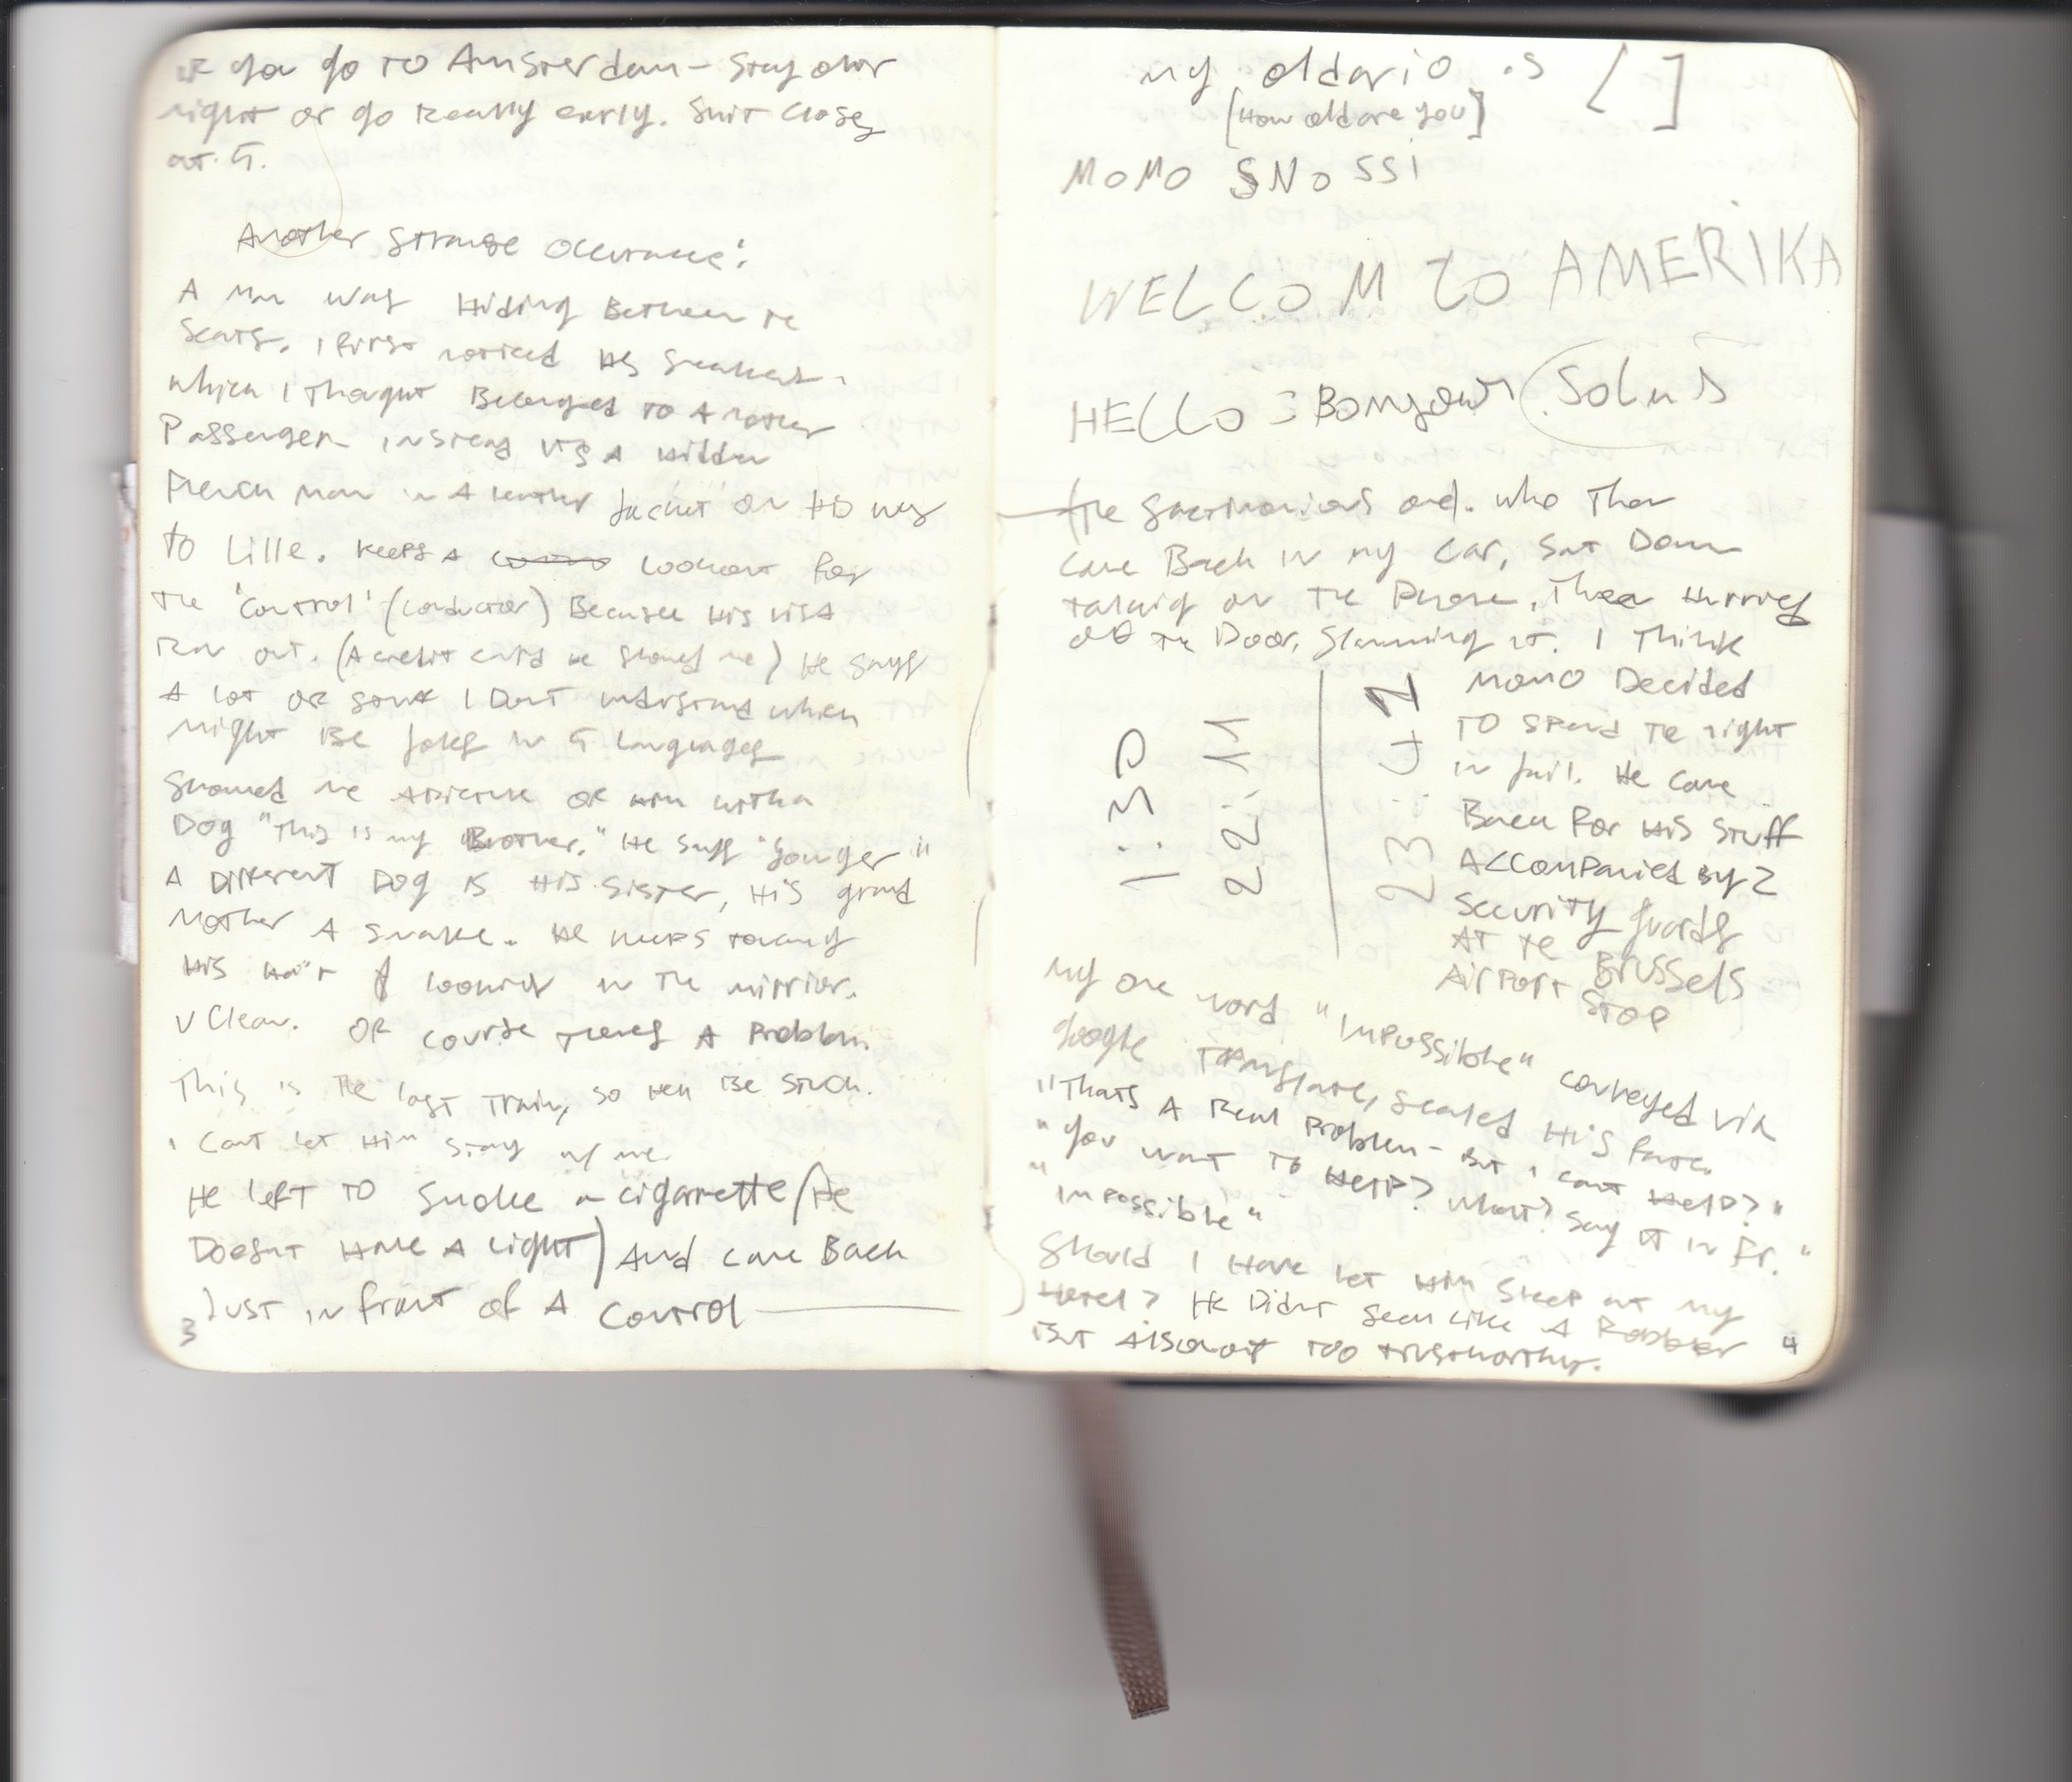 IF you go to Amsterdam - stay over
night or go really early. Shit closes
at 5.
Another strange occurance:
A man was Hiding Between te
seats. I first noticed his sneakers.
which I thought Belonged to Another
Passenger instead its A Hidden
French man in A leather jacket on His way
to Lille. Keeps A lookout for
the 'control' (conductor) Because His visa
ran out. (A credit card he showed me) He says
A lot of stuff I Dont understand which
might Be jokes in 5 languages
Showed me A Picture of him with a
Dog "This is my Brother." He says "younger"
A Different Dog is His Sister, His grand
Mother A snake. He keeps touching
His hair & looking in the mirrior.
V Clean. Of course theres A Problem.
This is the last train, so hell Be stuck.
I Cant let Him stay w/ me.
He left to smoke a cigarrette (He
Doesnt Have A light) And came Back
Just in front of A control
3
my oldario is [ ]
[How old are you]
MOMO SNOSSI
WELCOM TO AMERIKA
HELLO = Bonjour Solus
the and. who then
came Back in my car, sat Down
talking on the Phone, Then Hurried
out the Door, slamming it. I Think
Momo Decided
to spend te night
in jail. He came
Back for His stuff
Accompanied By 2
security guards
At te Brussels
Airport stop
1:30
22:11
23:42
My one word "Impossible" conveyed via
google translate, sealed His fate.
"Thats A Real Problem - But I cant Help?"
"You want to Help? What? Say it in Fr."
"Impossible"
Should I Have let Him sleep at my
Hotel? He Didnt seem like A Robber
But Also not too trustworthy.
4